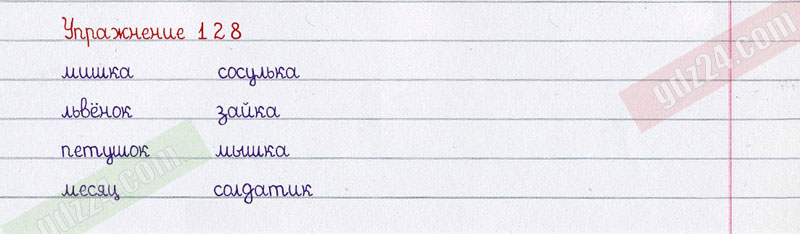 Упражнение 128
мишка сосулька
львёнок зайка
петушок мышка
месяц солдатик
gdz24.com
gdz24.com